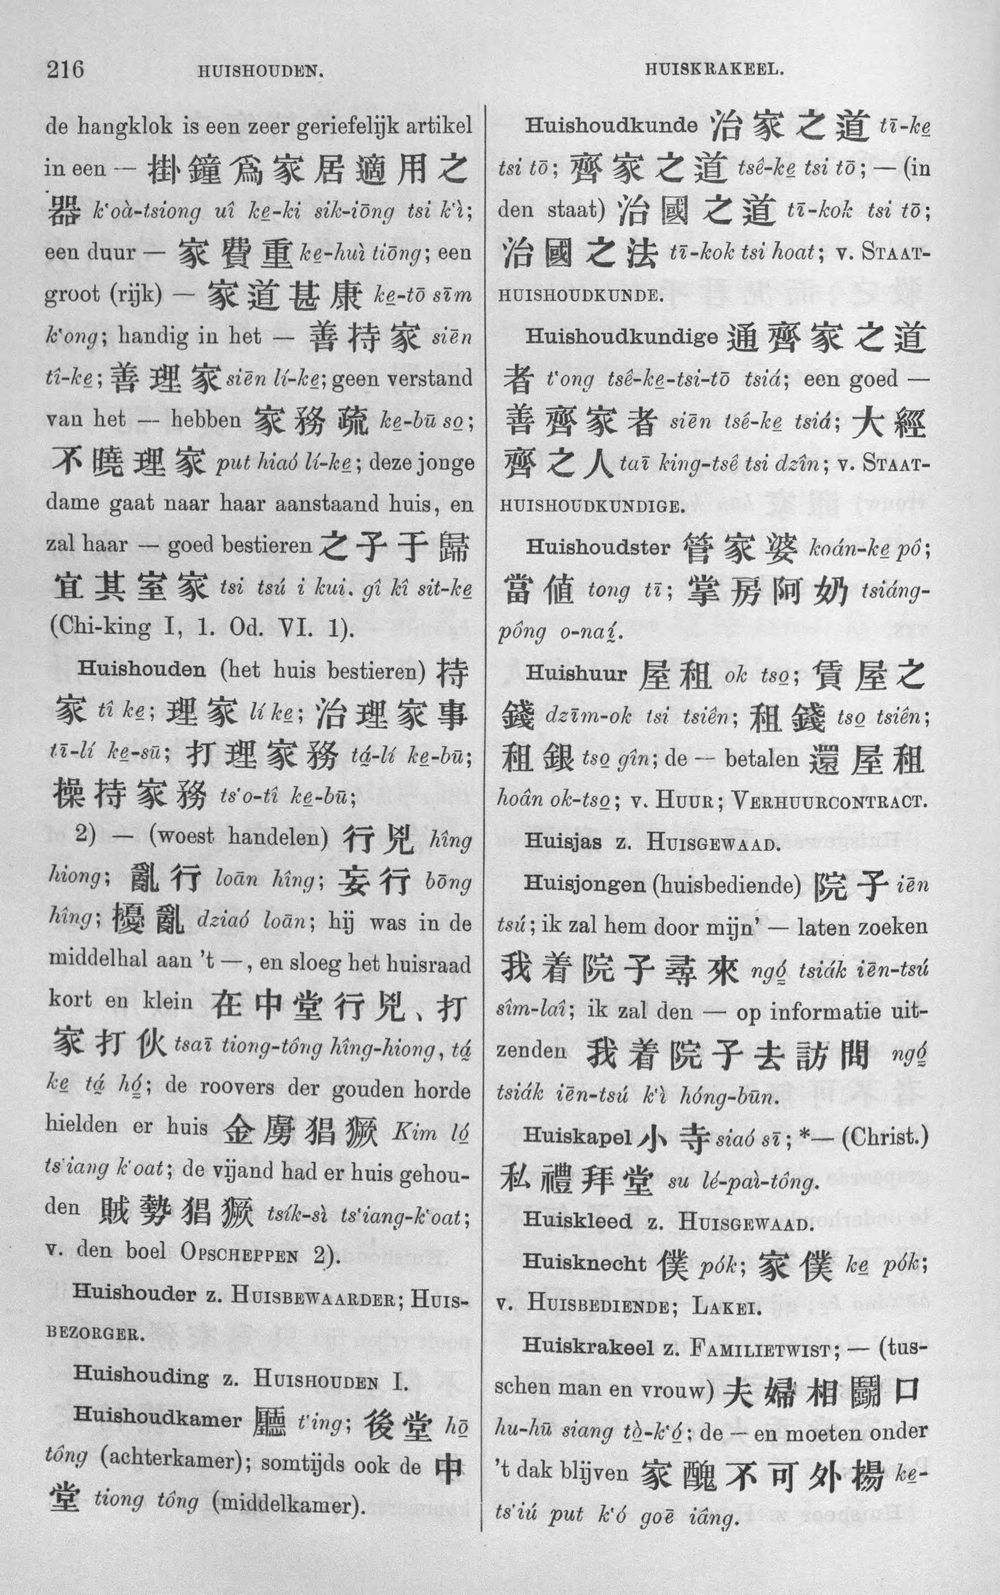 216
HUISHOUDEN.
HUISKRAKEEL.
de hangklok is een zeer geriefelijk artikel
in een — 掛鐘爲家居適用之
器 k'oà-tsiong uî ke̱-ki sik-iōng tsi k'ì;
een duur — 家費重 ke̱-huì tiōng; een
groot (rijk) — 家道甚康 ke̱-tō sīm
k'ong; handig in het — 善持家 siēn
tî-ke̱; 善理家 siēn lí-ke̱; geen verstand
van het — hebben 家務疏 ke̱-bū so̱;
不曉理家 put hiaó lí-ke̱; deze jonge
dame gaat naar haar aanstaand huis, en
zal haar — goed bestieren 之子于歸
宜其室家 tsi tsú i kui. gî kî sit-ke̱
(Chi-king I, 1. Od. VI. 1).
Huishouden (het huis bestieren) 持
家 tî ke̱; 理家 lí ke̱; 治理家事
tī-lí ke̱-sū; 打理家務 tá̱-lí ke̱-bū;
操持家務 ts'o-tî ke̱-bū;
2) — (woest handelen) 行兇 hîng
hiong; 亂行 loān hîng; 妄行 bōng
hîng; 擾亂 dziaó loān; hij was in de
middelhal aan 't —, en sloeg het huisraad
kort en klein 在中堂行兇、打
家打伙 tsaī tiong-tông hîng-hiong, tá̱
ke̱ tá̱ hó̱; de roovers der gouden horde
hielden er huis 金虜猖獗 Kim ló̱
ts'iang k'oat; de vijand had er huis gehou-
den 賊勢猖獗 tsík-sì ts'iang-k'oat;
v. den boel OPSCHEPPEN 2).
Huishouder z. HUISBEWAARDER; HUIS-
BEZORGER.
Huishouding z. HUISHOUDEN I.
Huishoudkamer 廳 t'ing; 後堂 hō̱
tông (achterkamer); somtijds ook de 中
堂 tiong tông (middelkamer).
Huishoudkunde 治家之道 tī-ke̱
tsi tō; 齊家之道 tsê-ke̱ tsi tō; — (in
den staat) 治國之道 tī-kok tsi tō;
治國之法 tī-kok tsi hoat; v. STAAT-
HUISHOUDKUNDE.
Huishoudkundige 通齊家之道
者 t'ong tsê-ke̱-tsi-tō tsiá; een goed —
善齊家者 siēn tsê-ke̱ tsiá; 大經
齊之人 taī king-tsê tsi dzîn; v. STAAT-
HUISHOUDKUNDIGE.
Huishoudster 管家婆 koán-ke̱ pô;
當値 tong tī; 掌房阿奶 tsiáng-
pông o-naí̱.
Huishuur 屋租 ok tso̱; 賃屋之
錢 dzīm-ok tsi tsiên; 租錢 tso̱ tsiên;
租銀 tso̱ gîn; de — betalen 還屋租
hoân ok-tso̱; v. HUUR; VERHUURCONTRACT.
Huisjas z. HUISGEWAAD.
Huisjongen (huisbediende) 院子 iēn
tsú; ik zal hem door mijn' — laten zoeken
我着院子尋來 ngó̱ tsiák iēn-tsú
sîm-laî; ik zal den — op informatie uit-
zenden 我着院子去訪問 ngó̱
tsiák iēn-tsú k'ì hóng-būn.
Huiskapel 小寺 siaó sī; *— (Christ.)
私禮拜堂 su lé-paì-tông.
Huiskleed z. HUISGEWAAD.
Huisknecht 僕 pók; 家僕 ke̱ pók;
v. HUISBEDIENDE; LAKEI.
Huiskrakeel z. FAMILIETWIST; — (tus-
schen man en vrouw) 夫婦相鬭口
hu-hū siang tò̱-k'ó̱; de — en moeten onder
't dak blijven 家醜不可外揚 ke̱-
ts'iú put k'ó goē iâng.